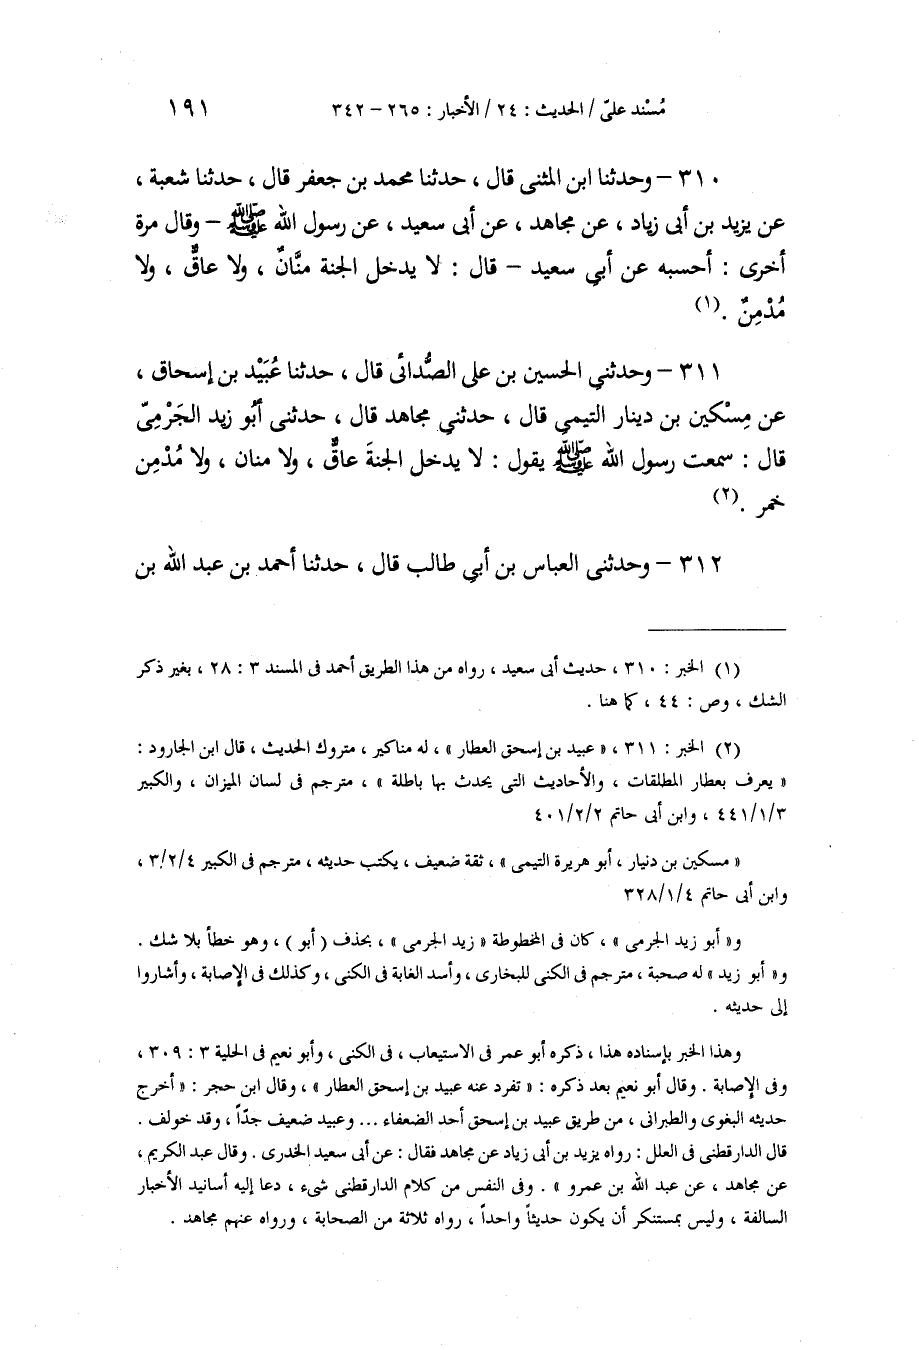 مُسْند علىّ / الحديث : ٢٤ / الأخبار : ٢٦٥ – ٣٤٢ ١٩١
٣١٠ – وحدثنا ابن المثنى قال ، حدثنا محمد بن جعفر قال ، حدثنا شعبة ،
عن يزيد بن أبى زياد ، عن مجاهد ، عن أبى سعيد ، عن رسول الله ﷺ – وقال مرة
أخرى : أحسبه عن أبي سعيد – قال : لا يدخل الجنة منَّانٌ ، ولا عاقٌّ ، ولا
مُدْمِنٌ .(١)
٣١١ – وحدثني الحسين بن على الصُّدائى قال ، حدثنا عُبَيْد بن إسحاق ،
عن مِسْكين بن دينار التيمي قال ، حدثني مجاهد قال ، حدثنى أبُو زيد الجَرْمِىّ
قال : سمعت رسول الله ﷺ يقول : لا يدخل الجنةَ عاقٌّ ، ولا منان ، ولا مُدْمِن
خمر .(٢)
٣١٢ – وحدثنى العباس بن أبي طالب قال ، حدثنا أحمد بن عبد الله بن
(١) الخبر : ٣١٠ ، حديث أبى سعيد ، رواه من هذا الطريق أحمد فى المسند ٣ : ٢٨ ، بغير ذكر
الشك ، وص : ٤٤ ، كما هنا .
(٢) الخبر : ٣١١ ، « عبيد بن إسحق العطار » ، له مناكير ، متروك الحديث ، قال ابن الجارود :
« يعرف بعطار المطلقات ، والأحاديث التى يحدث بها باطلة » ، مترجم فى لسان الميزان ، والكبير
٣/١/٤٤١ ، وابن أبى حاتم ٢/٢/٤٠١
« مسكين بن دنيار ، أبو هريرة التيمى » ، ثقة ضعيف ، يكتب حديثه ، مترجم فى الكبير ٤/٢/٣ ،
وابن أبى حاتم ٤/١/٣٢٨
و« أبو زيد الجرمى » ، كان فى المخطوطة « زيد الجرمى » ، بحذف ( أبو ) ، وهو خطأ بلا شك .
و« أبو زيد » له صحبة ، مترجم فى الكنى للبخارى ، وأسد الغابة فى الكنى ، وكذلك فى الإصابة ، وأشاروا
إلى حديثه .
وهذا الخبر بإسناده هذا ، ذكره أبو عمر فى الاستيعاب ، فى الكنى ، وأبو نعيم فى الحلية ٣ : ٣٠٩ ،
وفى الإصابة . وقال أبو نعيم بعد ذكره : « تفرد عنه عبيد بن إسحق العطار » ، وقال ابن حجر : « أخرج
حديثه البغوى والطبرانى ، من طريق عبيد بن إسحق أحد الضعفاء ... وعبيد ضعيف جدّاً ، وقد خولف .
قال الدارقطنى فى العلل : رواه يزيد بن أبى زياد عن مجاهد فقال : عن أبى سعيد الخدرى . وقال عبد الكريم ،
عن مجاهد ، عن عبد الله بن عمرو » . وفى النفس من كلام الدارقطنى شىء ، دعا إليه أسانيد الأخبار
السالفة ، وليس بمستنكر أن يكون حديثاً واحداً ، رواه ثلاثة من الصحابة ، ورواه عنهم مجاهد .